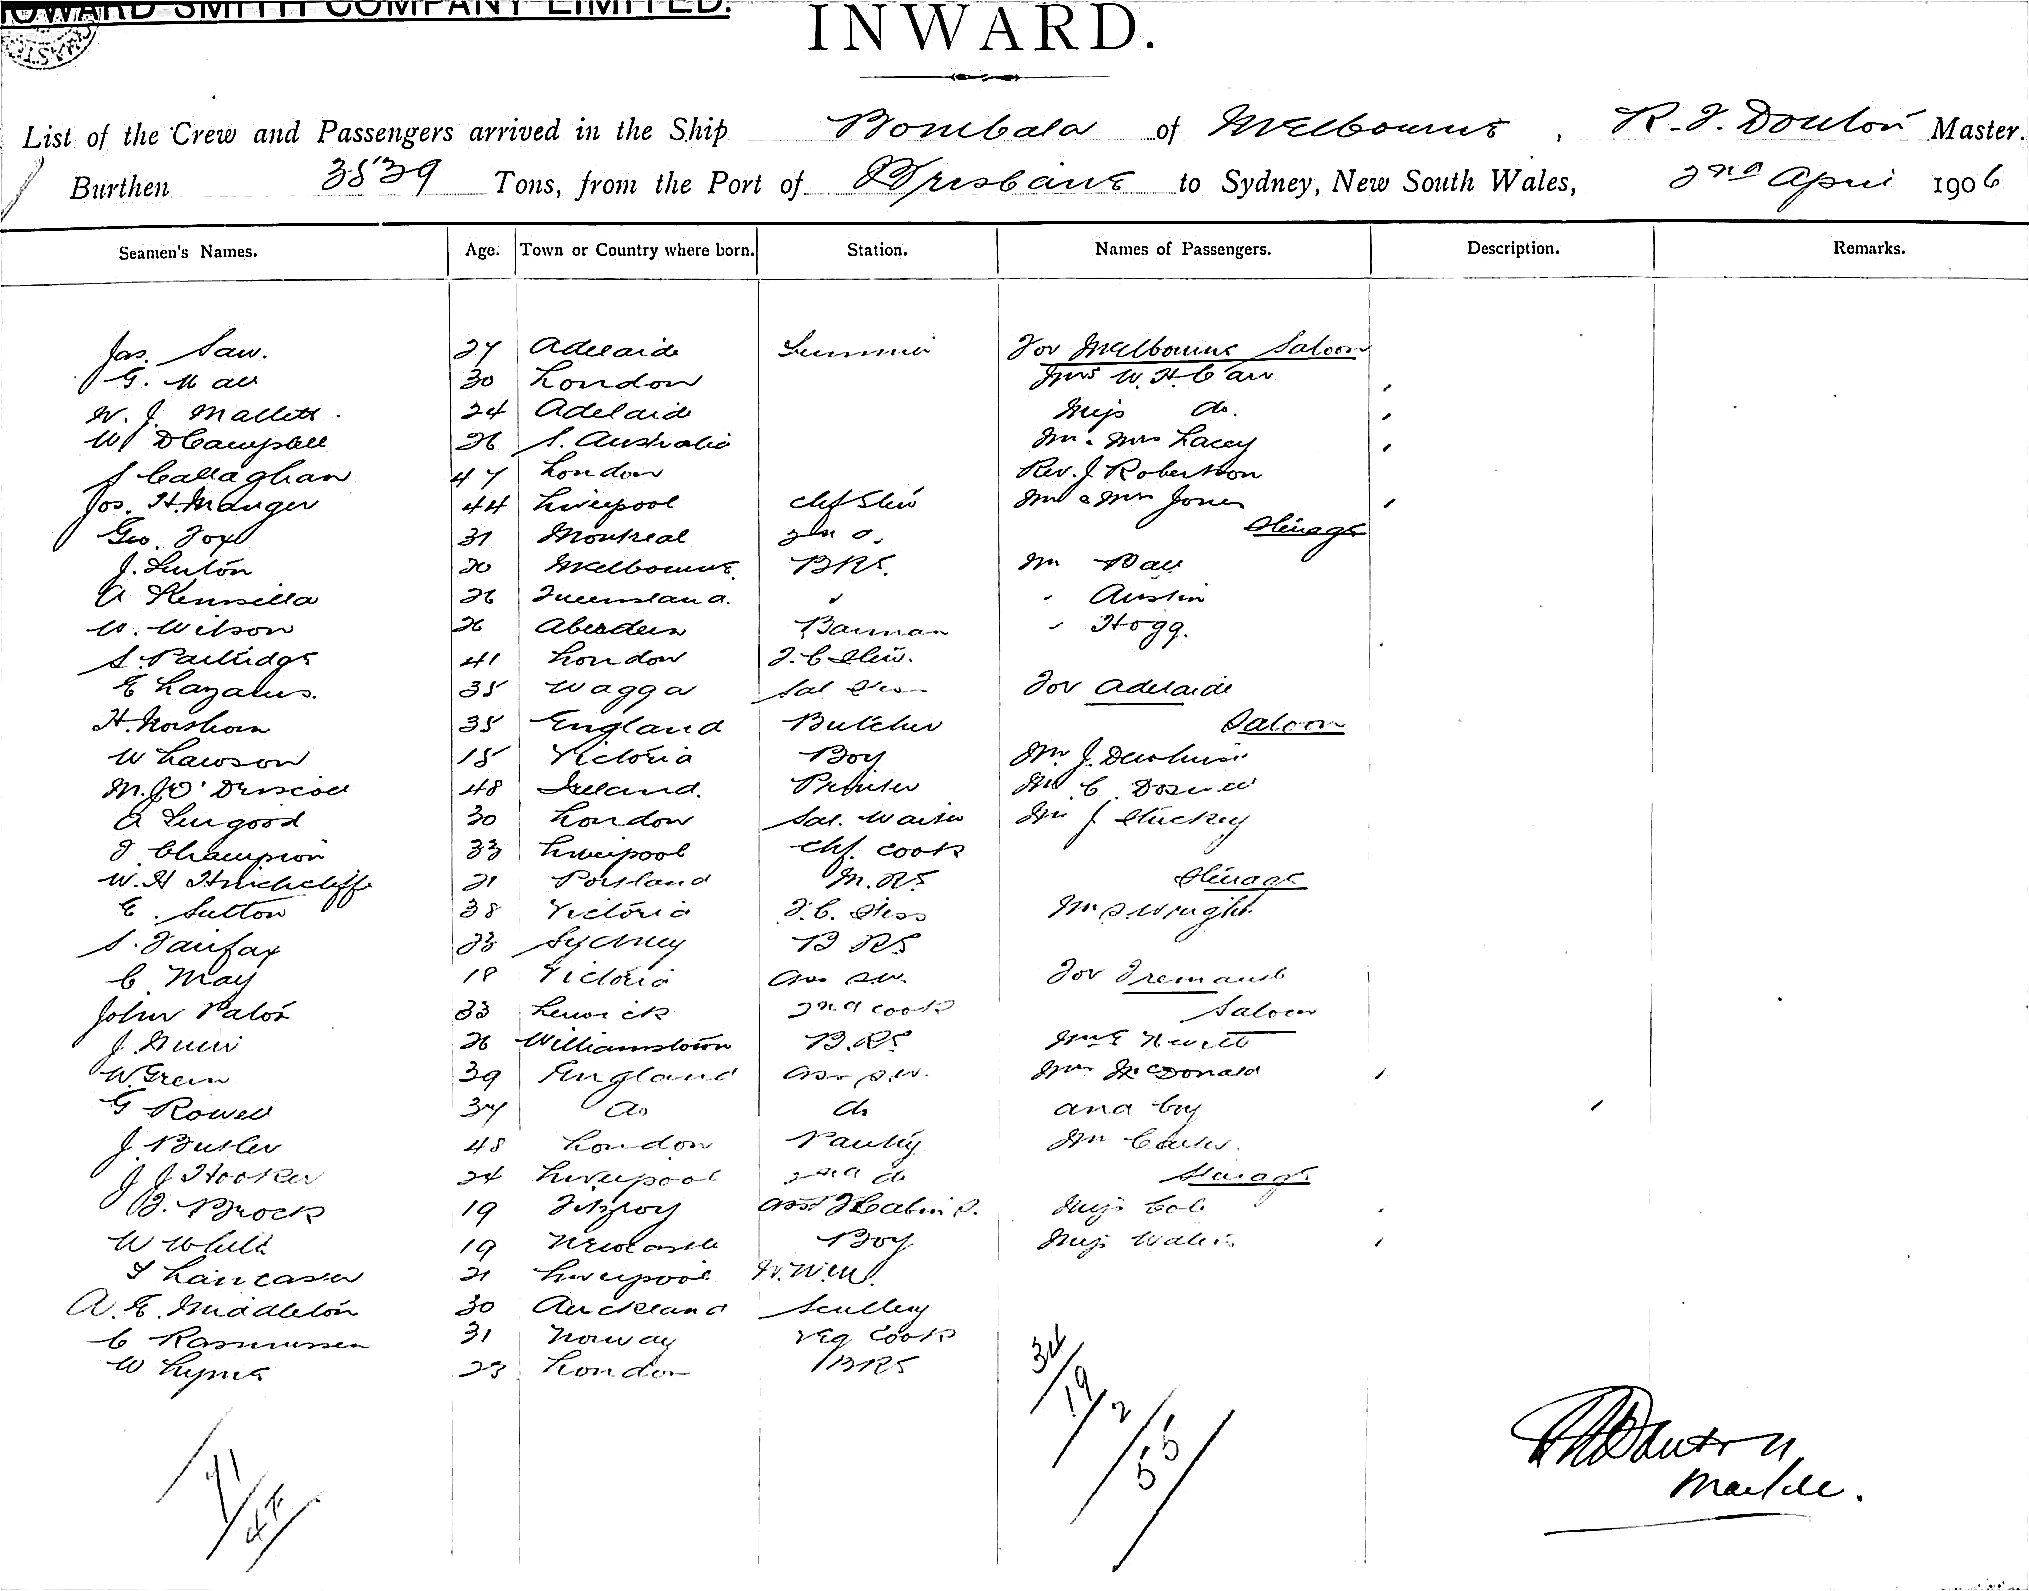 HOWARD SMITH COMPANY LIMITED.
INWARD.
List of the Crew and Passengers arrived in the Ship Bombala of Melbourne, R. J. Douton Master.
Burthen 3539 Tons, from the Port of Brisbane to Sydney, New South Wales, 2nd April 1906
Seamen's Names. Age. Town or Country where born. Station. Names of Passengers. Description. Remarks.
Jas. Saw. 27 Adelaide For Melbourne Saloon
G. 30 London Mrs W. H. Carr
W. J. Mallett. 24 Adelaide Miss do.
W D Campbell 26 S. Australia Mr & Mrs Lacey
S Callaghan 47 London Rev. J. Robertson
Jos. H. Manger 44 Liverpool Chf Stew Mr & Mrs Jones
Geo. Fox 31 Montreal Steerage
J. 20 Melbourne B.RS. Mr
A Kennella 26 Queensland. " Austin
W. Wilson 26 Aberdeen Barman " Hogg.
S. Partridge 41 London F. C Stew.
E Lazarus. 35 Wagga Sal Stess For Adelaide
H. Horshorn 35 England Butcher Saloon
W Lawson 15 Victoria Boy Mr. J.
M. J O'Driscoll 48 Ireland. Printer Mr C.
A 30 London Sal. Waiter Mr J Stuckey
F Champion 33 Liverpool Chf. Cook
W. H Hinchcliffe 21 Portland M. RS Steerage
E. Sutton 38 Victoria F. C. Stess Mr S. Wright
S. Fairfax 23 Sydney B RS
C. May 18 Victoria Ass P.W. For Fremantle
John Paton 33 Lerwick 2nd Cook Saloon
J. 26 Williamstown B. RS Hewitt
W. Green 39 England Ass P.W. Mrs McDonald
G Rowell 37 do do and boy
J. Butler 48 London Pantry Mr
J J Hooker 24 Liverpool 2nd do Steerage
B. Brock 19 Fitzroy Asst F Cabin P. Miss
W White 19 Newcastle Boy Miss
T Lancaster 21 Liverpool
A. E. Middleton 30 Auckland Scullery
C Rasmussen 31 Norway Veg Cook
W Lyms 23 London BRS
34/19/2/55
71/
Master.